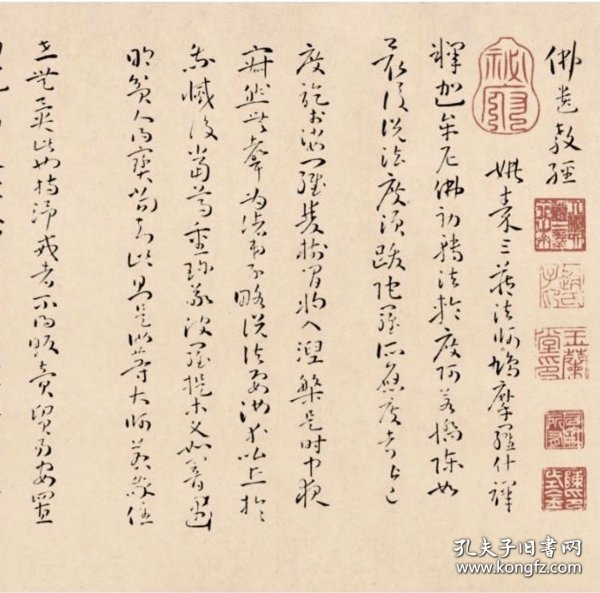 佛遗教经
姚秦三藏法师鸠摩罗什译
释迦牟尼佛初转法轮度阿若憍陈如
最后说法度须跋陀罗所应度者皆已
度讫于娑罗双树间将入涅槃是时中夜
寂然无声为诸弟子略说法要汝等比丘于
我灭后当尊重珍敬波罗提木叉如暗遇
明贫人得宝当知此则是汝等大师若我住
世无异此也持净戒者不得贩卖贸易安置
孔夫子旧书网
www.kongfz.com